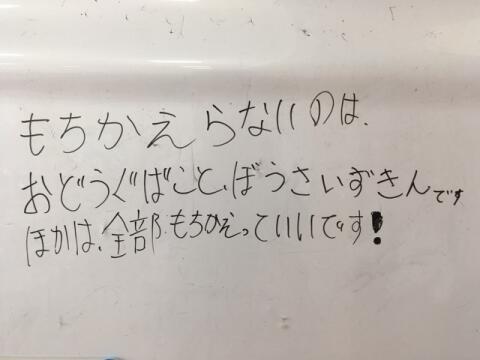 もちかえらないのは、
おどうぐばこと、ぼうさいずきんです
ほかは、全部もちかえっていいです!